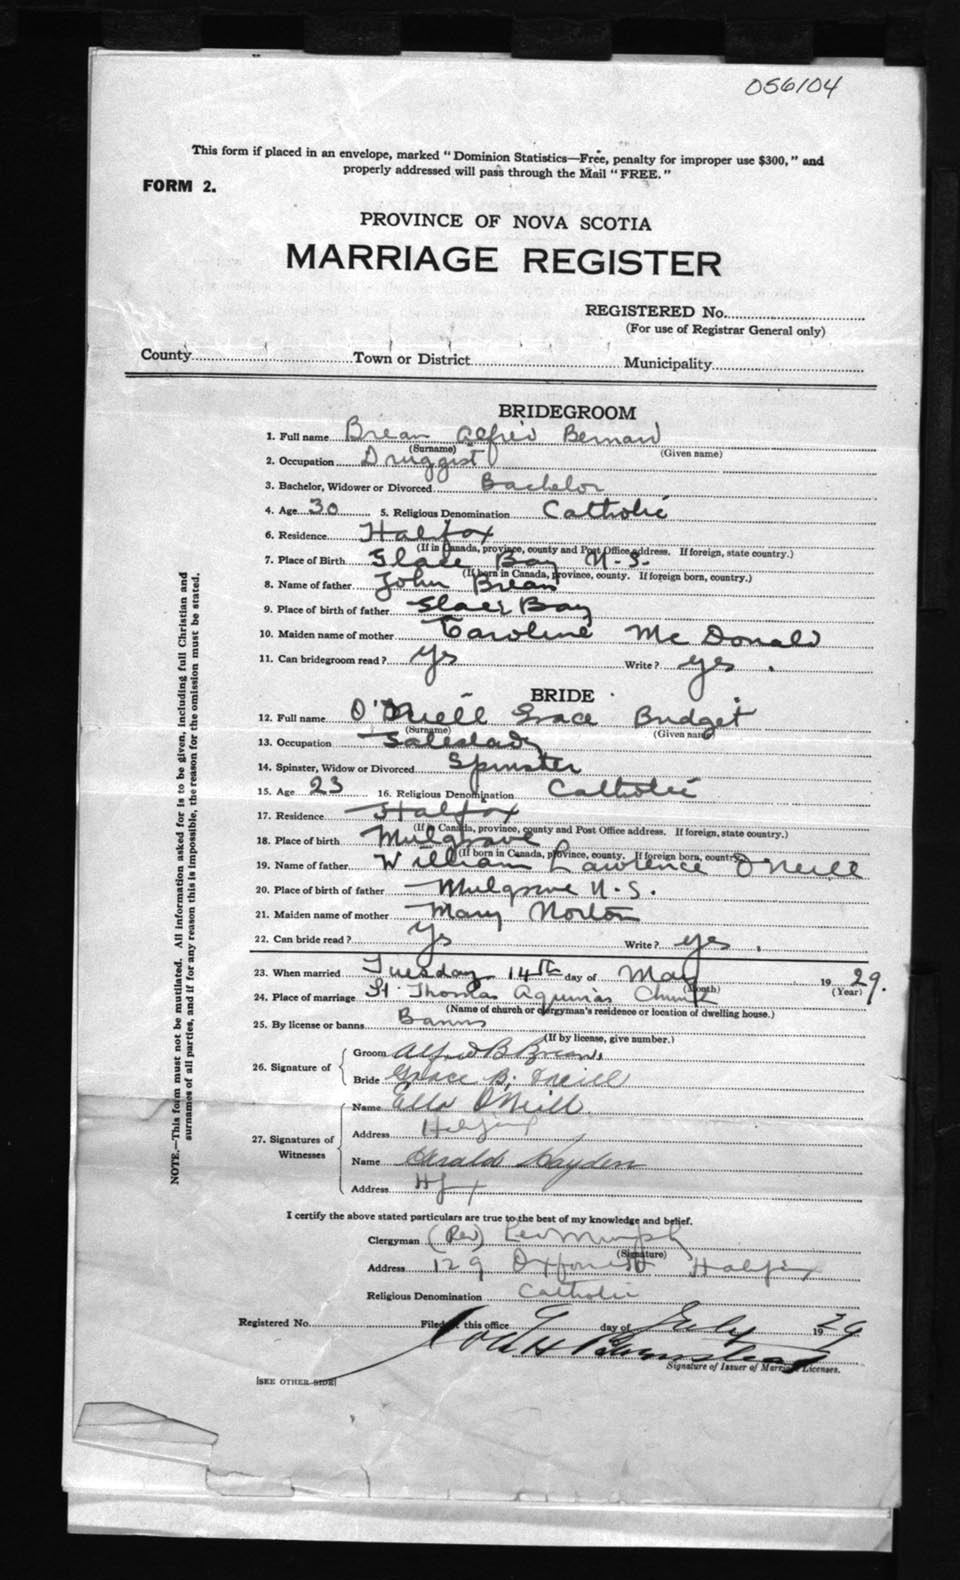 056104
This form if placed in an envelope, marked "Dominion Statistics—Free, penalty for improper use $300," and
properly addressed will pass through the Mail "FREE."
FORM 2.
PROVINCE OF NOVA SCOTIA
MARRIAGE REGISTER
REGISTERED No.
(For use of Registrar General only)
County Town or District Municipality
BRIDEGROOM
1. Full name Brean Alfred Bernard
(Surname) (Given name)
2. Occupation Druggist
3. Bachelor, Widower or Divorced Bachelor
4. Age 30 5. Religious Denomination Catholic
6. Residence Halfox
(If in Canada, province, county and Post Office address. If foreign, state country.)
7. Place of Birth Glace Bay N.S.
(If born in Canada, province, county. If foreign born, country.)
8. Name of father John Brean
9. Place of birth of father Glace Bay
10. Maiden name of mother Caroline McDonald
11. Can bridegroom read? yes Write? yes.
BRIDE
12. Full name O'Neill Grace Bridget
(Surname) (Given name)
13. Occupation Saleslady
14. Spinster, Widow or Divorced Spinster
15. Age 23 16. Religious Denomination Catholic
17. Residence Halfox
(If in Canada, province, county and Post Office address. If foreign, state country.)
18. Place of birth Mulgrave
(If born in Canada, province, county. If foreign born, country.)
19. Name of father William Lawrence O'Neill
20. Place of birth of father Mulgrave N.S.
21. Maiden name of mother Mary Norton
22. Can bride read? yes Write? yes.
23. When married Tuesday 14th day of May 1929.
(Month) (Year)
24. Place of marriage St. Thomas Aquinas Church
(Name of church or clergyman's residence or location of dwelling house.)
25. By license or banns Banns
(If by license, give number.)
26. Signature of
Groom Alfred B Brean.
Bride Grace B. O'Neill
27. Signatures of
Witnesses
Name Ella O'Neill
Address Halifax
Name Gerald Hayden
Address Hfx
I certify the above stated particulars are true to the best of my knowledge and belief.
Clergyman (Rev) Leo Murphy
(Signature)
Address 129 Oxford St Halifax
Religious Denomination Catholic
Registered No. Filed at this office 9 day of July 1929
Signature of Issuer of Marriage Licenses.
[SEE OTHER SIDE]
NOTE.—This form must not be mutilated. All information asked for is to be given, including full Christian and
surnames of all parties, and if for any reason this is impossible, the reason for the omission must be stated.